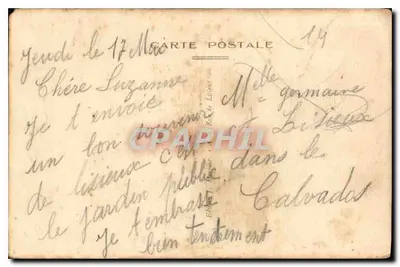 CARTE POSTALE
14
Jeudi le 17 Mai
Chère Suzanne
Je t envoie
un bon souvenir
de lisieux c'est
le jardin publix
Je t embrasse
bien tendrement
Melle germaine
Lisieux
dans le
Calvados
CPAPHIL